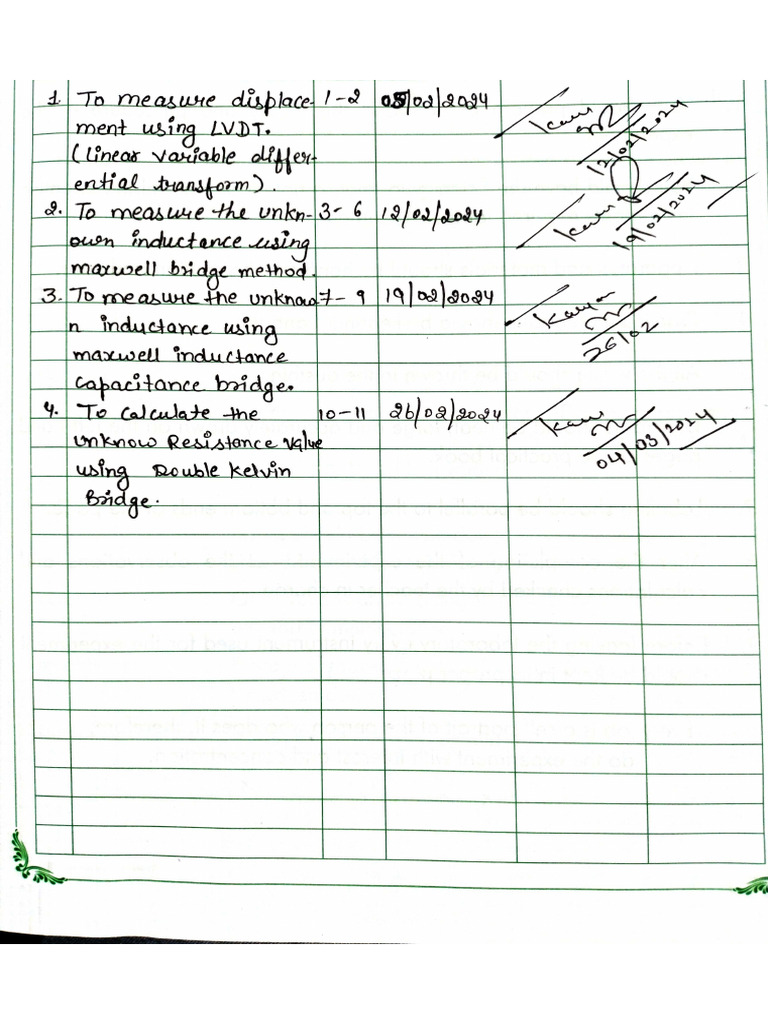 1. To measure displace- 1-2 05/02/2024
ment using LVDT.
(linear variable differ-
ential transform).
12/02/2024
2. To measure the unkn- 3-6 12/02/2024
own inductance using
maxwell bridge method.
19/02/2024
3. To measure the unknow 7-9 19/02/2024
n inductance using
maxwell inductance
capacitance bridge.
26/02
4. To Calculate the 10-11 26/02/2024
unknow Resistance value
using Double Kelvin
Bridge.
04/03/2024